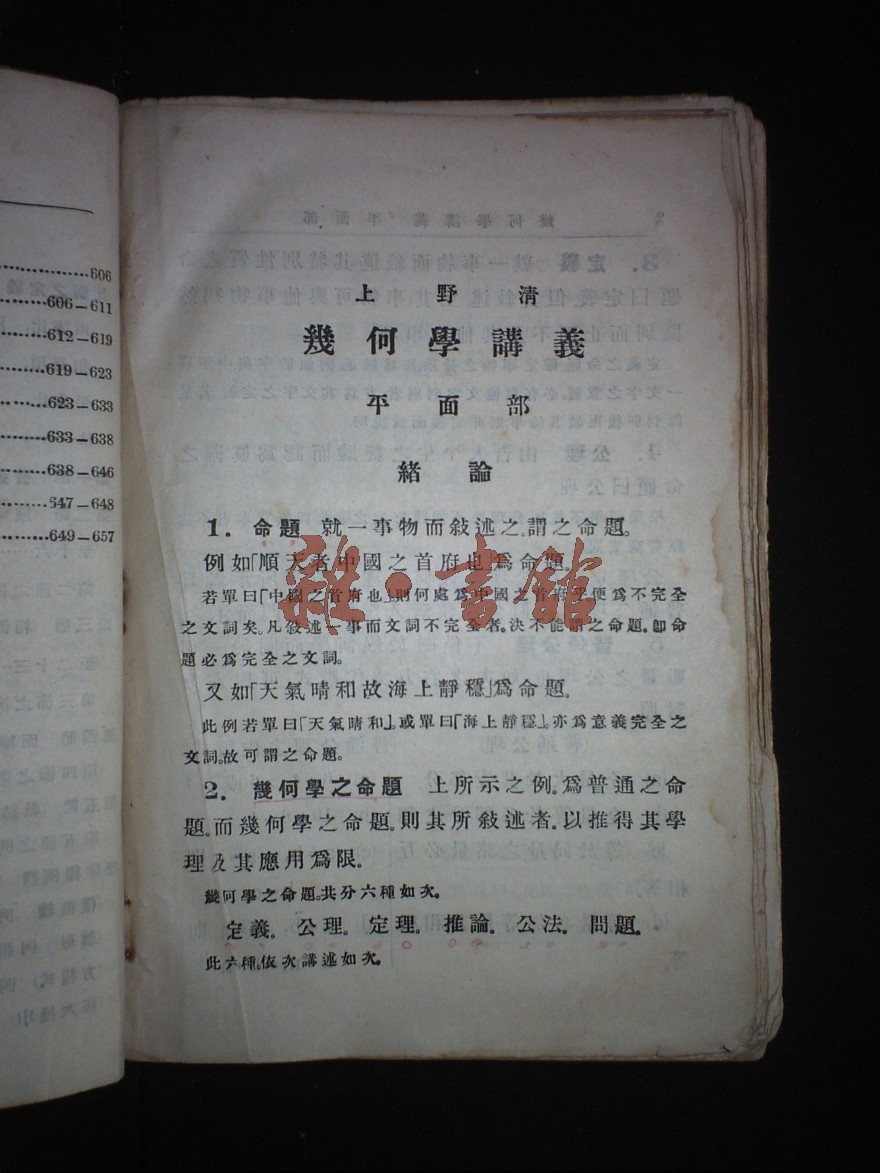 606
606—611
612—619
619—623
623—633
633—638
638—646
647—648
649—657
上野清
幾何學講義
平面部
緒論
1. 命題 就一事物而敍述之。謂之命題。
例如「順天者中國之首府也」爲命題。
若單曰「中國之首府也」則何處爲中國之首府乎便爲不完全
之文詞矣。凡敍述一事而文詞不完全者。決不能謂之命題。卽命
題必爲完全之文詞。
又如「天氣晴和故海上靜穩」爲命題。
此例若單曰「天氣晴和」。或單曰「海上靜穩」亦爲意義完全之
文詞。故可謂之命題。
2. 幾何學之命題 上所示之例。爲普通之命
題。而幾何學之命題。則其所敍述者。以推得其學
理及其應用爲限。
幾何學之命題。共分六種如次。
定義。公理。定理。推論。公法。問題。
此六種。依次講述如次。
雜·書館